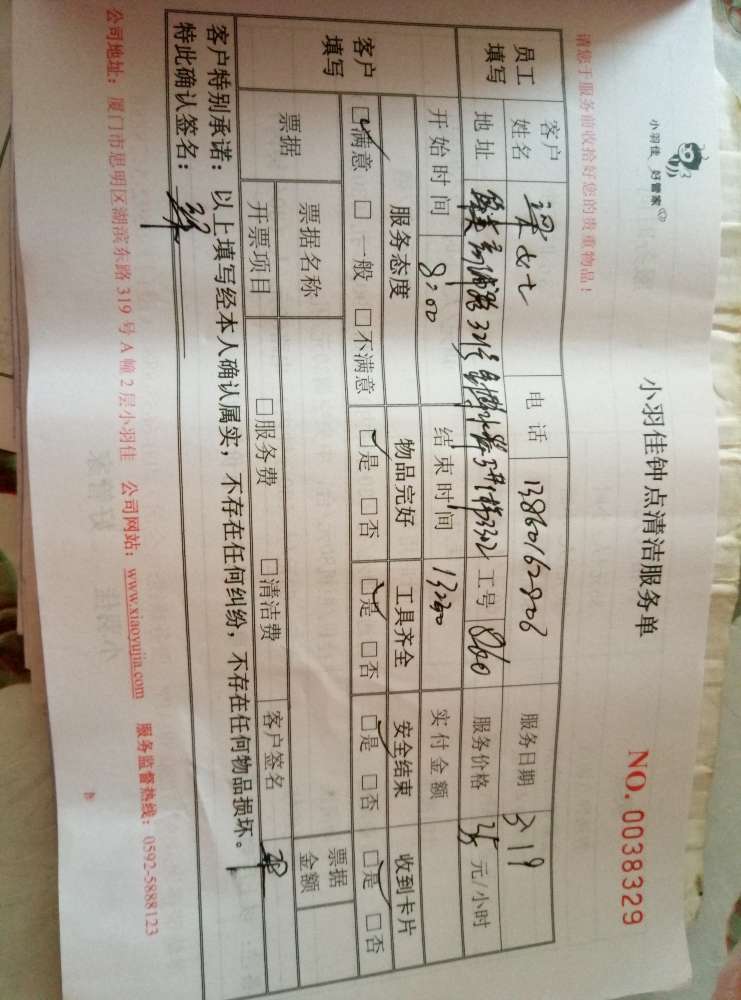 小羽佳 好管家
小羽佳钟点清洁服务单
NO. 0038329
请您于服务前收拾好您的贵重物品！
员工填写 客户姓名 梁女士 电话 13860162806 服务日期 3.19
地址 321号 工号 0860 服务价格 35 元/小时
开始时间 8:00 结束时间 13:00 实付金额
客户填写 服务态度 物品完好 工具齐全 安全结束 收到卡片
☑满意 □一般 □不满意 ☑是 □否 ☑是 □否 ☑是 □否 ☑是 □否
票据 票据名称 票据金额
开票项目 □服务费 □清洁费 客户签名
客户特别承诺：以上填写经本人确认属实，不存在任何纠纷，不存在任何物品损坏。
特此确认签名：
公司地址：厦门市思明区湖滨东路319号A幢2层小羽佳 公司网站：www.xiaoyujia.com 服务监督热线：0592-5888123